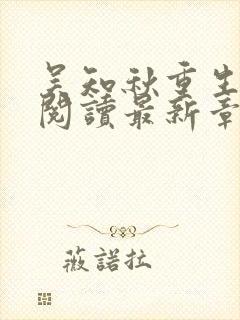 吴知秋重生
閱讀最新章
薇諾拉